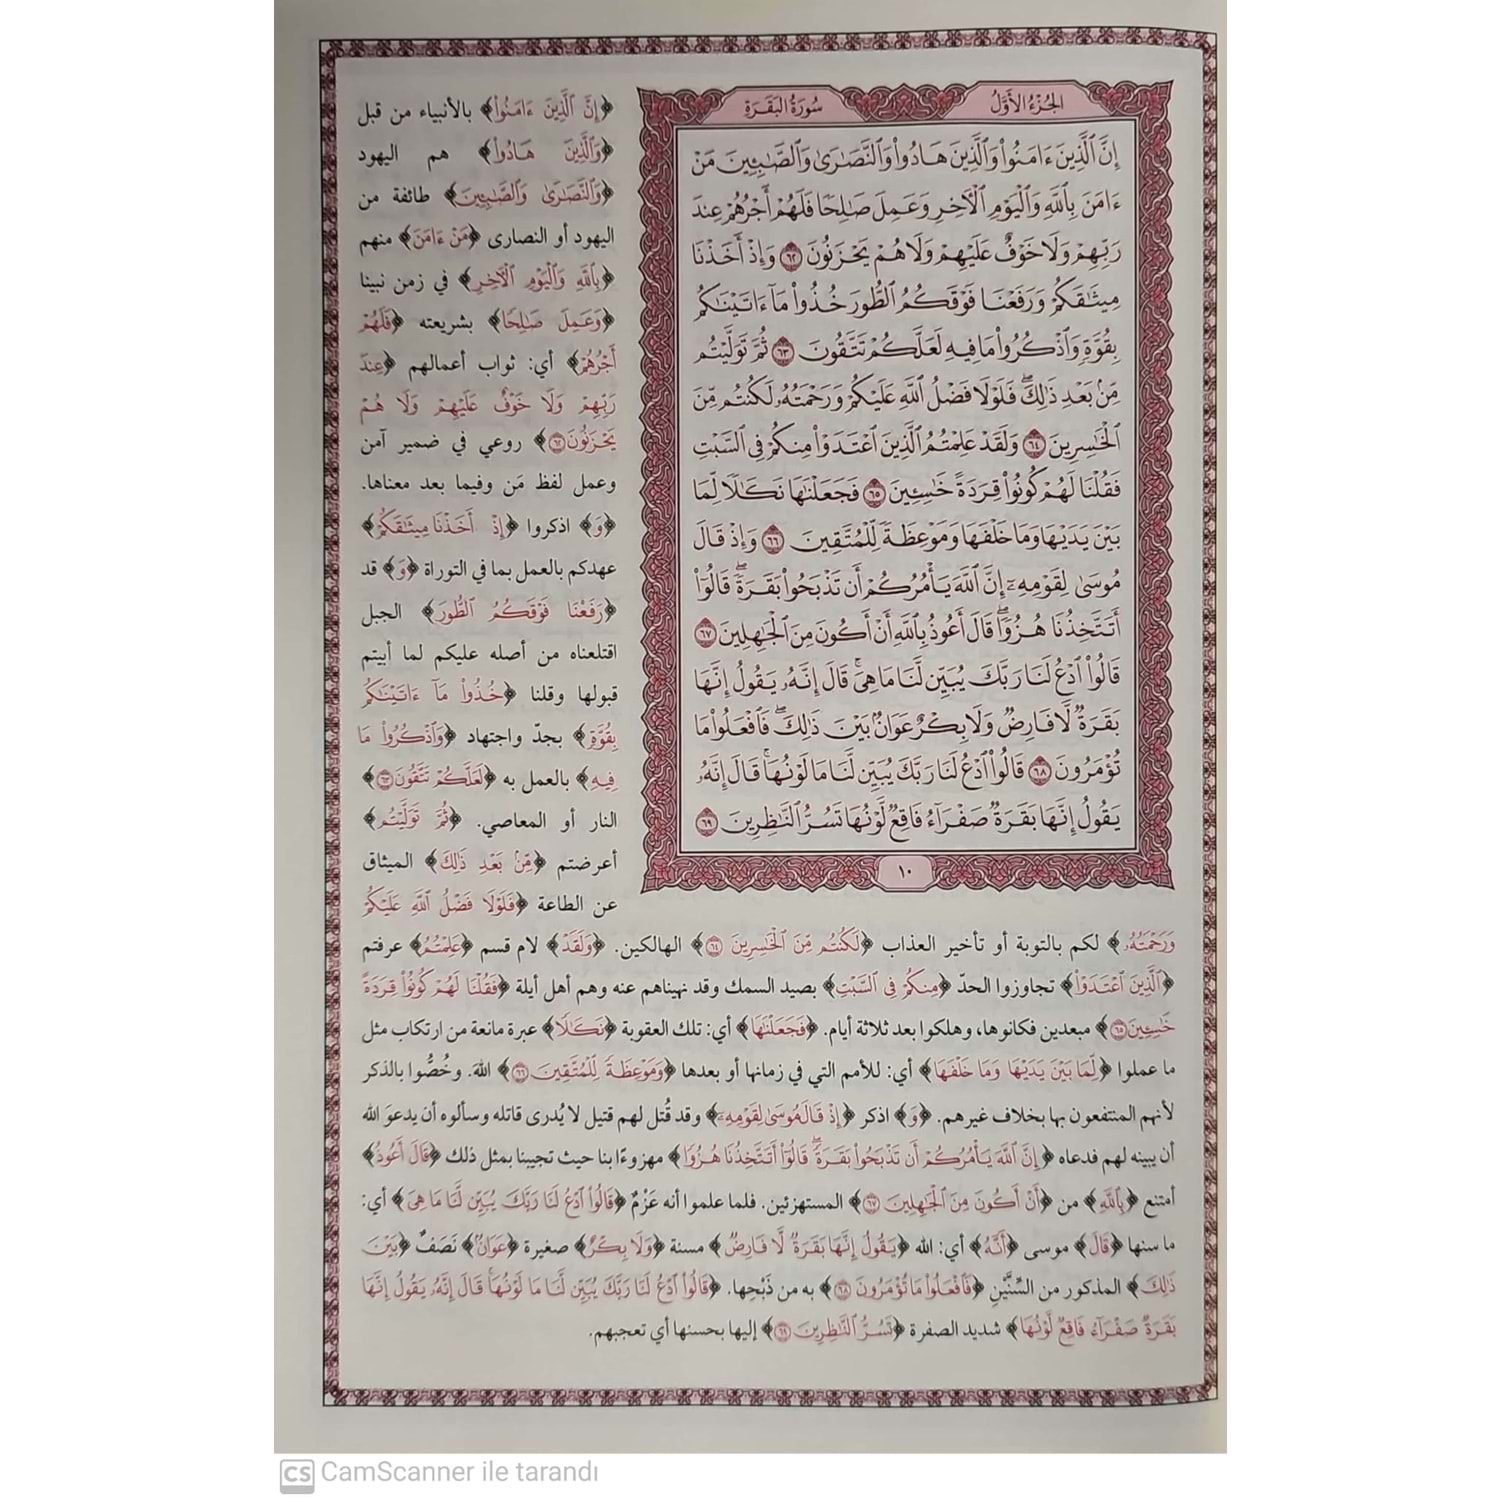 الجُزْءُ الأَوَّلُ
سُورَةُ البَقَرَةِ
إِنَّ ٱلَّذِينَ ءَامَنُوا۟ وَٱلَّذِينَ هَادُوا۟ وَٱلنَّصَٰرَىٰ وَٱلصَّٰبِـِٔينَ مَنْ
ءَامَنَ بِٱللَّهِ وَٱلْيَوْمِ ٱلْءَاخِرِ وَعَمِلَ صَٰلِحًا فَلَهُمْ أَجْرُهُمْ عِندَ
رَبِّهِمْ وَلَا خَوْفٌ عَلَيْهِمْ وَلَا هُمْ يَحْزَنُونَ ٦٢ وَإِذْ أَخَذْنَا
مِيثَٰقَكُمْ وَرَفَعْنَا فَوْقَكُمُ ٱلطُّورَ خُذُوا۟ مَآ ءَاتَيْنَٰكُم
بِقُوَّةٍ وَٱذْكُرُوا۟ مَا فِيهِ لَعَلَّكُمْ تَتَّقُونَ ٦٣ ثُمَّ تَوَلَّيْتُم
مِّنۢ بَعْدِ ذَٰلِكَ ۖ فَلَوْلَا فَضْلُ ٱللَّهِ عَلَيْكُمْ وَرَحْمَتُهُۥ لَكُنتُم مِّنَ
ٱلْخَٰسِرِينَ ٦٤ وَلَقَدْ عَلِمْتُمُ ٱلَّذِينَ ٱعْتَدَوْا۟ مِنكُمْ فِى ٱلسَّبْتِ
فَقُلْنَا لَهُمْ كُونُوا۟ قِرَدَةً خَٰسِـِٔينَ ٦٥ فَجَعَلْنَٰهَا نَكَٰلًا لِّمَا
بَيْنَ يَدَيْهَا وَمَا خَلْفَهَا وَمَوْعِظَةً لِّلْمُتَّقِينَ ٦٦ وَإِذْ قَالَ
مُوسَىٰ لِقَوْمِهِۦٓ إِنَّ ٱللَّهَ يَأْمُرُكُمْ أَن تَذْبَحُوا۟ بَقَرَةً ۖ قَالُوٓا۟
أَتَتَّخِذُنَا هُزُوًا ۖ قَالَ أَعُوذُ بِٱللَّهِ أَنْ أَكُونَ مِنَ ٱلْجَٰهِلِينَ ٦٧
قَالُوا۟ ٱدْعُ لَنَا رَبَّكَ يُبَيِّن لَّنَا مَا هِىَ ۚ قَالَ إِنَّهُۥ يَقُولُ إِنَّهَا
بَقَرَةٌ لَّا فَارِضٌ وَلَا بِكْرٌ عَوَانٌۢ بَيْنَ ذَٰلِكَ ۖ فَٱفْعَلُوا۟ مَا
تُؤْمَرُونَ ٦٨ قَالُوا۟ ٱدْعُ لَنَا رَبَّكَ يُبَيِّن لَّنَا مَا لَوْنُهَا ۚ قَالَ إِنَّهُۥ
يَقُولُ إِنَّهَا بَقَرَةٌ صَفْرَآءُ فَاقِعٌ لَّوْنُهَا تَسُرُّ ٱلنَّٰظِرِينَ ٦٩
١٠
﴿إِنَّ ٱلَّذِينَ ءَامَنُوا۟﴾ بالأنبياء من قبل
﴿وَٱلَّذِينَ هَادُوا۟﴾ هم اليهود
﴿وَٱلنَّصَٰرَىٰ وَٱلصَّٰبِـِٔينَ﴾ طائفة من
اليهود أو النصارى ﴿مَنْ ءَامَنَ﴾ منهم
﴿بِٱللَّهِ وَٱلْيَوْمِ ٱلْءَاخِرِ﴾ في زمن نبينا
﴿وَعَمِلَ صَٰلِحًا﴾ بشريعته ﴿فَلَهُمْ
أَجْرُهُمْ﴾ أي: ثواب أعمالهم ﴿عِندَ
رَبِّهِمْ وَلَا خَوْفٌ عَلَيْهِمْ وَلَا هُمْ
يَحْزَنُونَ ٦٢﴾ روعي في ضمير آمن
وعمل لفظ مَن وفيما بعد معناها.
﴿وَ﴾ اذكروا ﴿إِذْ أَخَذْنَا مِيثَٰقَكُمْ﴾
عهدكم بالعمل بما في التوراة ﴿وَ﴾ قد
﴿رَفَعْنَا فَوْقَكُمُ ٱلطُّورَ﴾ الجبل
اقتلعناه من أصله عليكم لما أبيتم
قبولها وقلنا ﴿خُذُوا۟ مَآ ءَاتَيْنَٰكُم
بِقُوَّةٍ﴾ بجدّ واجتهاد ﴿وَٱذْكُرُوا۟ مَا
فِيهِ﴾ بالعمل به ﴿لَعَلَّكُمْ تَتَّقُونَ ٦٣﴾
النار أو المعاصي. ﴿ثُمَّ تَوَلَّيْتُم﴾
أعرضتم ﴿مِّنۢ بَعْدِ ذَٰلِكَ﴾ الميثاق
عن الطاعة ﴿فَلَوْلَا فَضْلُ ٱللَّهِ عَلَيْكُمْ
وَرَحْمَتُهُۥ﴾ لكم بالتوبة أو تأخير العذاب ﴿لَكُنتُم مِّنَ ٱلْخَٰسِرِينَ ٦٤﴾ الهالكين. ﴿وَلَقَدْ﴾ لام قسم ﴿عَلِمْتُمُ﴾ عرفتم
﴿ٱلَّذِينَ ٱعْتَدَوْا۟﴾ تجاوزوا الحدّ ﴿مِنكُمْ فِى ٱلسَّبْتِ﴾ بصيد السمك وقد نهيناهم عنه وهم أهل أيلة ﴿فَقُلْنَا لَهُمْ كُونُوا۟ قِرَدَةً
خَٰسِـِٔينَ ٦٥﴾ مبعدين فكانوها، وهلكوا بعد ثلاثة أيام. ﴿فَجَعَلْنَٰهَا﴾ أي: تلك العقوبة ﴿نَكَٰلًا﴾ عبرة مانعة من ارتكاب مثل
ما عملوا ﴿لِّمَا بَيْنَ يَدَيْهَا وَمَا خَلْفَهَا﴾ أي: للأمم التي في زمانها أو بعدها ﴿وَمَوْعِظَةً لِّلْمُتَّقِينَ ٦٦﴾ اللهَ. وخُصُّوا بالذكر
لأنهم المنتفعون بها بخلاف غيرهم. ﴿وَ﴾ اذكر ﴿إِذْ قَالَ مُوسَىٰ لِقَوْمِهِۦٓ﴾ وقد قُتل لهم قتيل لا يُدرى قاتله وسألوه أن يدعوَ الله
أن يبينه لهم فدعاه ﴿إِنَّ ٱللَّهَ يَأْمُرُكُمْ أَن تَذْبَحُوا۟ بَقَرَةً ۖ قَالُوٓا۟ أَتَتَّخِذُنَا هُزُوًا﴾ مهزوءًا بنا حيث تجيبنا بمثل ذلك ﴿قَالَ أَعُوذُ﴾
أمتنع ﴿بِٱللَّهِ﴾ من ﴿أَنْ أَكُونَ مِنَ ٱلْجَٰهِلِينَ ٦٧﴾ المستهزئين. فلما علموا أنه عَزْمٌ ﴿قَالُوا۟ ٱدْعُ لَنَا رَبَّكَ يُبَيِّن لَّنَا مَا هِىَ﴾ أي:
ما سنها ﴿قَالَ﴾ موسى ﴿أَنَّهُ﴾ أي: الله ﴿يَقُولُ إِنَّهَا بَقَرَةٌ لَّا فَارِضٌ﴾ مسنة ﴿وَلَا بِكْرٌ﴾ صغيرة ﴿عَوَانٌۢ﴾ نَصَفٌ ﴿بَيْنَ
ذَٰلِكَ﴾ المذكور من السِّنَّيْنِ ﴿فَٱفْعَلُوا۟ مَا تُؤْمَرُونَ ٦٨﴾ به من ذَبْحِها. ﴿قَالُوا۟ ٱدْعُ لَنَا رَبَّكَ يُبَيِّن لَّنَا مَا لَوْنُهَا ۚ قَالَ إِنَّهُۥ يَقُولُ إِنَّهَا
بَقَرَةٌ صَفْرَآءُ فَاقِعٌ لَّوْنُهَا﴾ شديد الصفرة ﴿تَسُرُّ ٱلنَّٰظِرِينَ ٦٩﴾ إليها بحسنها أي تعجبهم.
CS CamScanner ile tarandı